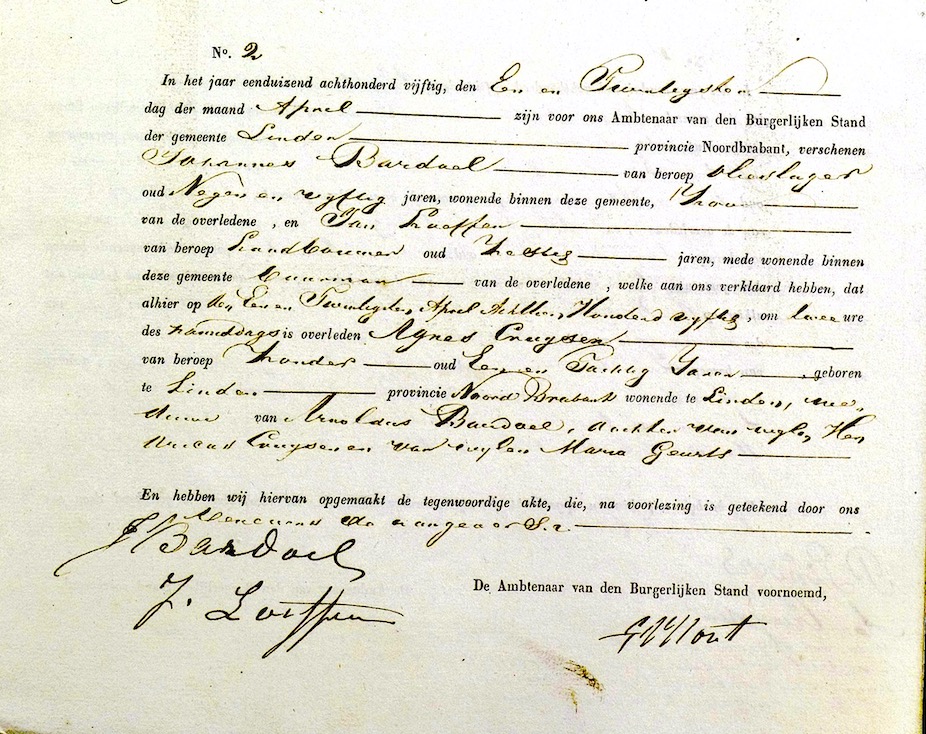 No. 2
In het jaar eenduizend achthonderd vijftig, den Een en Twintigsten
dag der maand April zijn voor ons Ambtenaar van den Burgerlijken Stand
der gemeente Linden provincie Noordbrabant, verschenen
Johannes Bardoel van beroep
oud Negen en vyftig jaren, wonende binnen deze gemeente, Zoon
van de overledene , en Jan
van beroep Landbouwer oud Zestig jaren, mede wonende binnen
deze gemeente van de overledene , welke aan ons verklaard hebben, dat
alhier op den Een en Twintigsten April Achttien Honderd vyftig, om twee ure
des namiddags is overleden Agnes Cruysen
van beroep Zonder oud Een en Tachtig Jaren , geboren
te Linden provincie Noord Brabant wonende te Linden, we-
duwe van Arnoldus Bardoel, dochter van wylen Hen
Cruysen en van wylen Maria Geurts
En hebben wij hiervan opgemaakt de tegenwoordige akte, die, na voorlezing is geteekend door ons
de aangevers.
J Bardoel
De Ambtenaar van den Burgerlijken Stand voornoemd,
J.